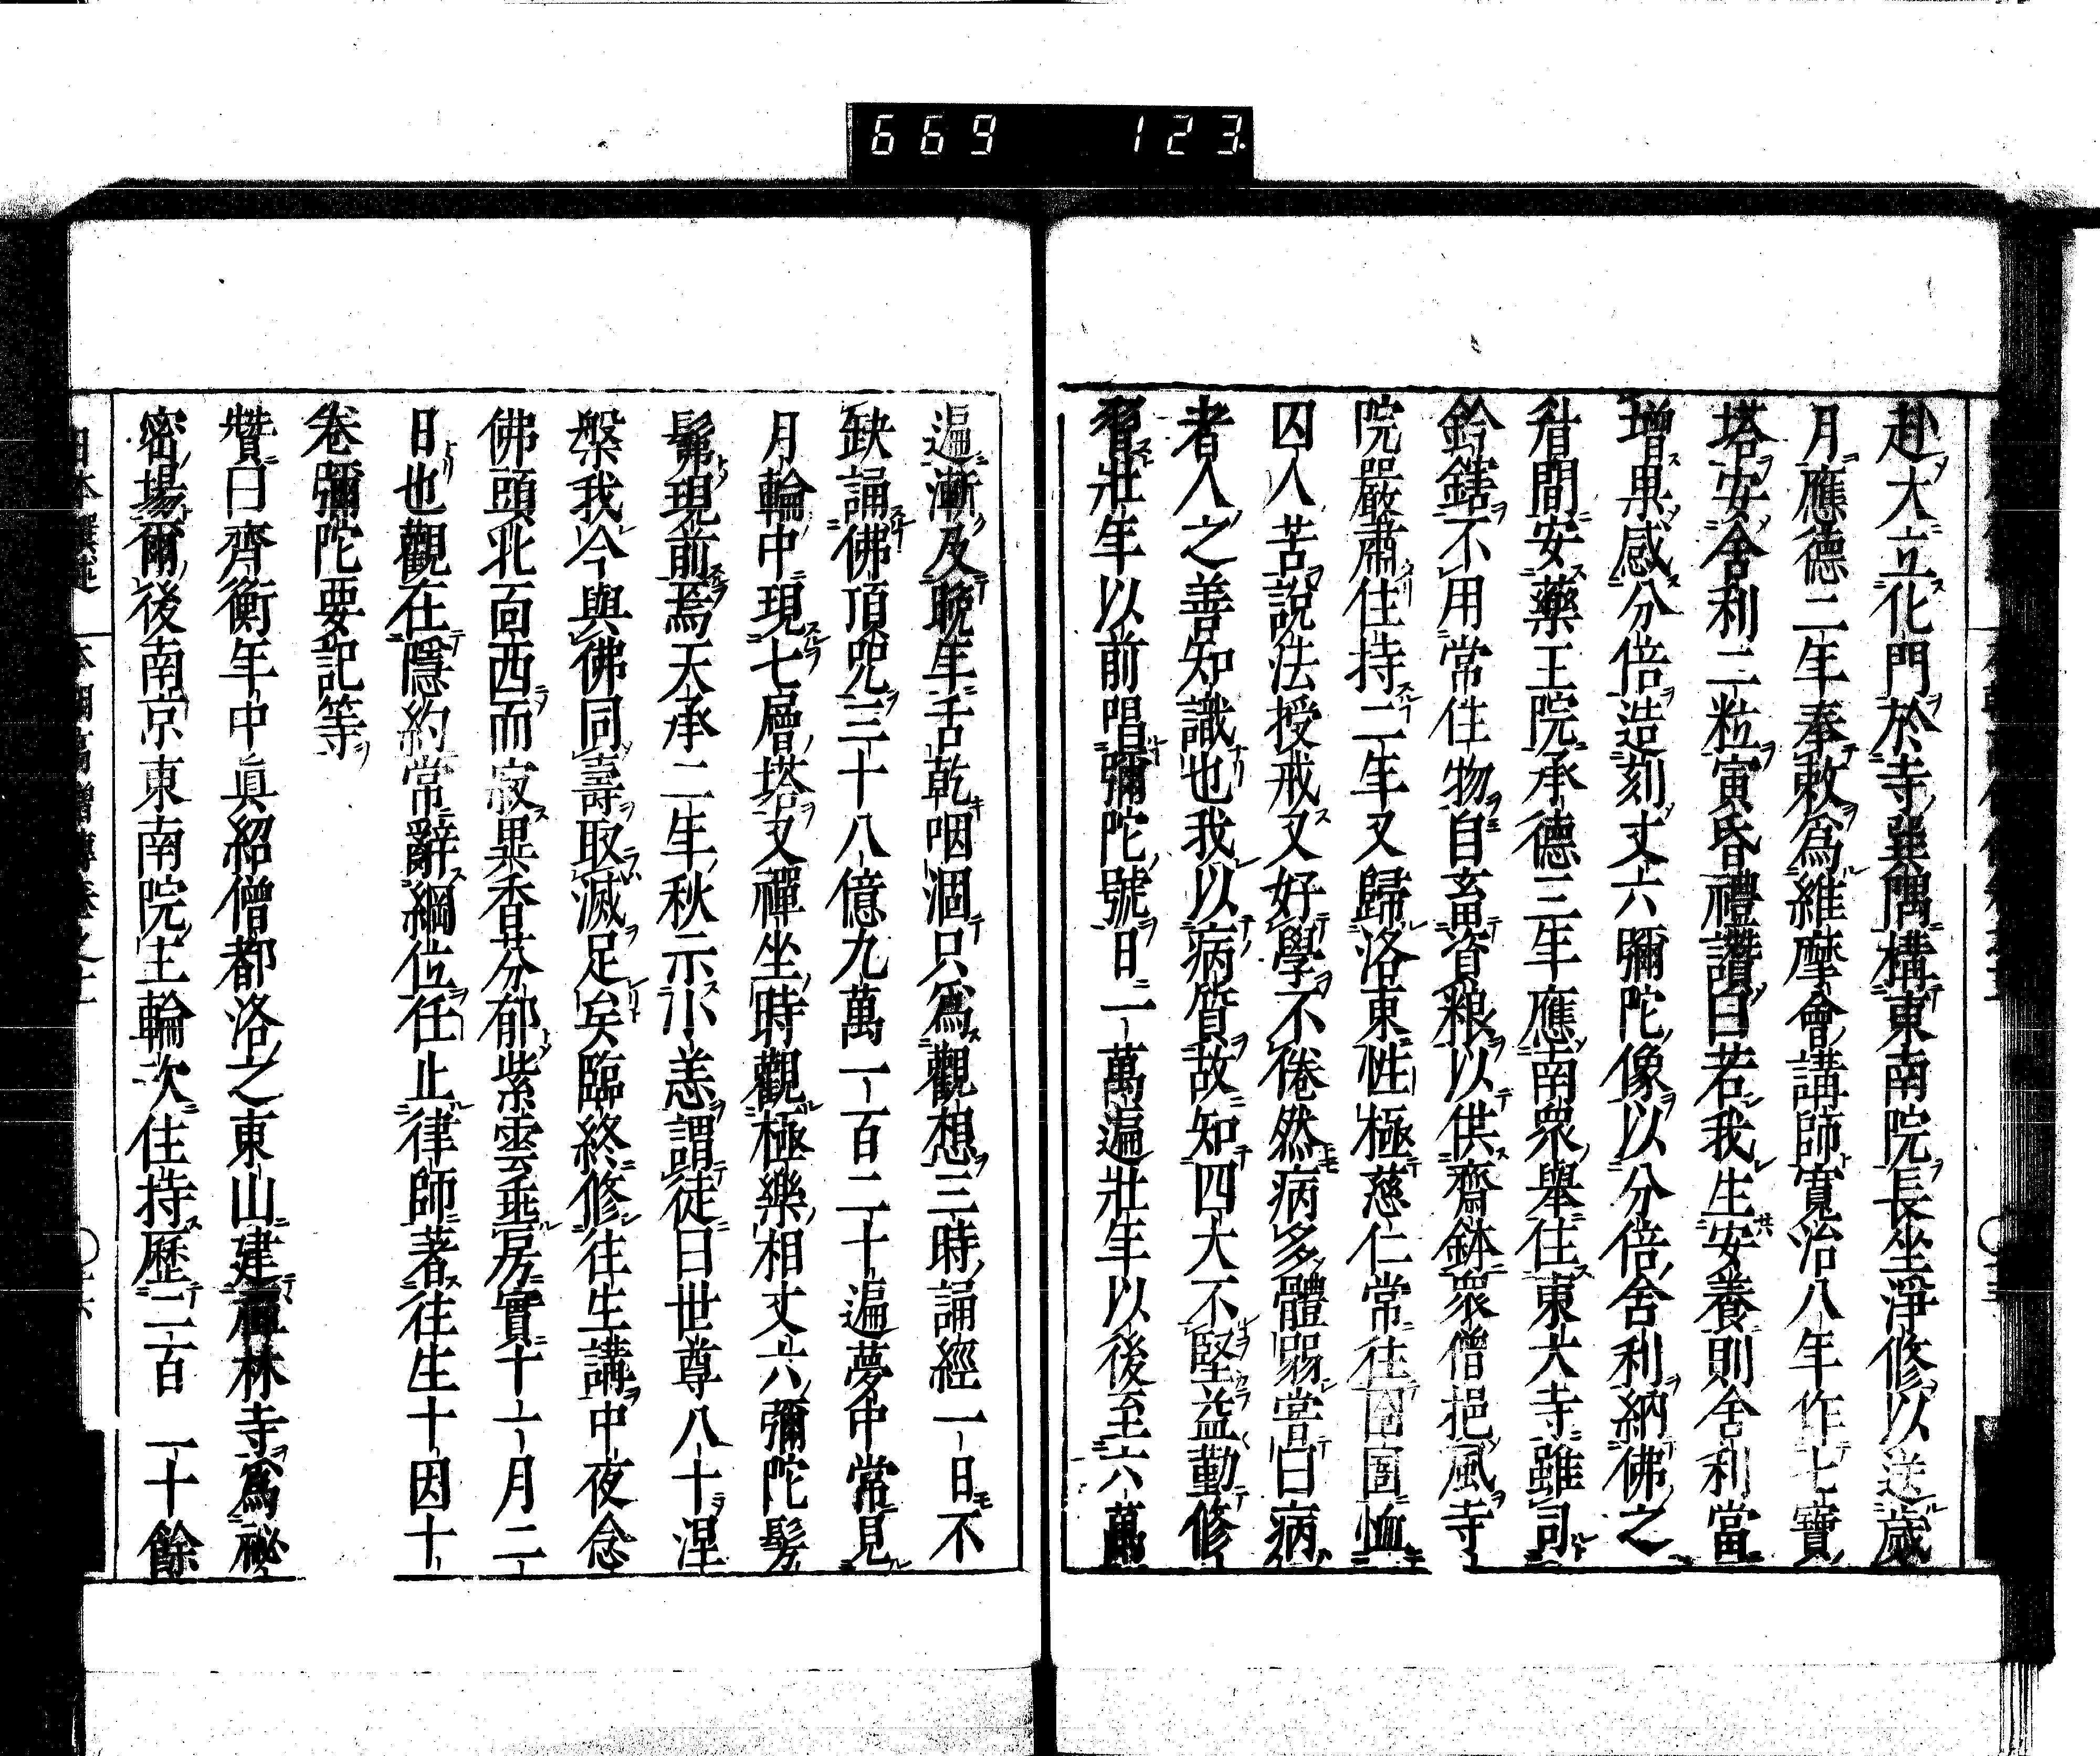 669 123
赴大立化門於寺巽隅構東南院長坐淨修以送歲
月應德二年奉敕爲維摩會講師寬治八年作七寶
塔安舍利二粒寅昏禮讚曰若我生安養則舍利當
增果感分倍造刻丈六彌陀像以分倍舍利納佛之
眉間安藥王院承德三年應南衆舉住東大寺雖司
鈴鎋不用常住物自畜資粮以供齋鉢衆僧挹風寺
院嚴肅住持二年又歸洛東性極慈仁常往囹圄恤
囚人苦說法授戒又好學不倦然病多體弱嘗曰病
者人之善知識也我以病質故知四大不堅益勤修
習壯年以前唱彌陀號日一萬遍壯年以後至六萬
遍漸及晚年舌乾咽涸只爲觀想三時誦經一日不
缺誦佛頂咒三十八億九萬一百二十遍夢中常見
月輪中現七層塔又禪坐時觀極樂相丈六彌陀髣
髴現前焉天承二年秋示小恙謂徒曰世尊八十涅
槃我今與佛同壽取滅足矣臨終修往生講中夜念
佛頭北面西而寂異香芬郁紫雲垂房實十一月二
日也觀在隱約常辭綱位任止律師著往生十因十
卷彌陀要記等
贊曰齊衡年中眞紹僧都洛之東山建禪林寺爲祕
密場爾後南京東南院主輪次住持歷二百一十餘